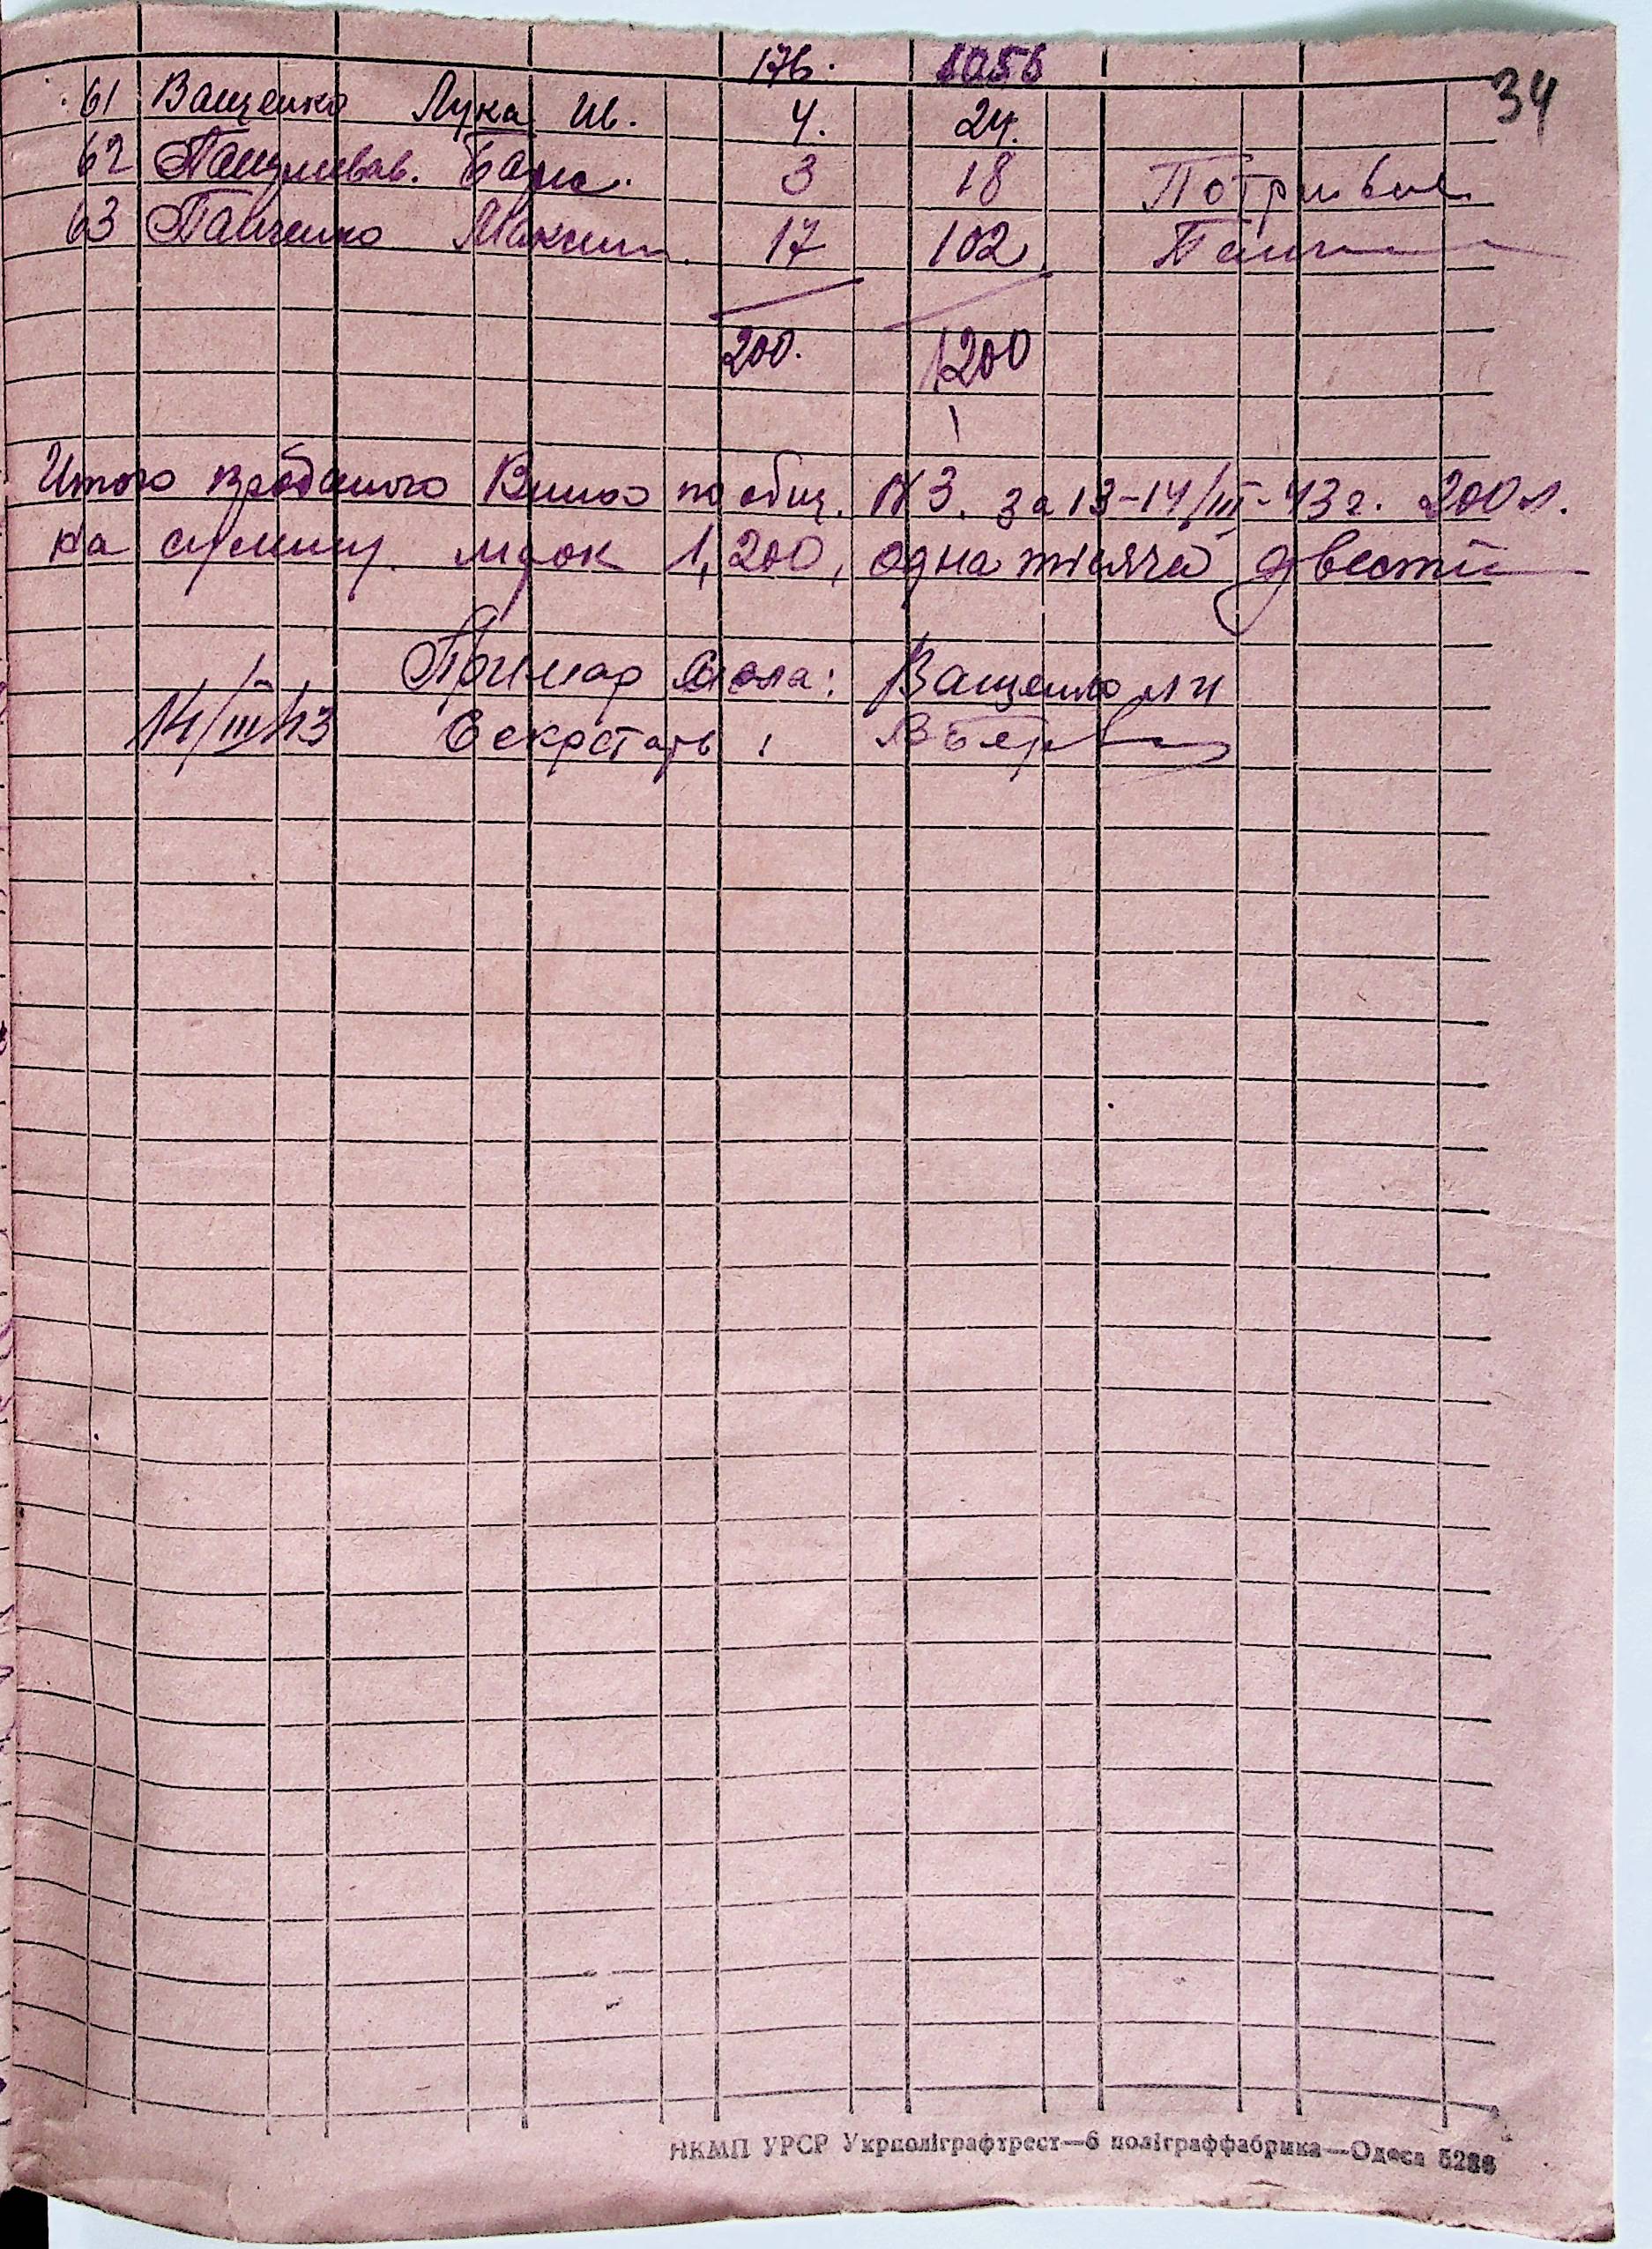 176. 1056
34
61 Ващенко Лука Ив. 4. 24.
62 3 18
63 Панченко Максим. 17 102
200. 1200
Итого проданого Вина по общ. № 3. за 13-14/III-43 г. 200 л.
на сумму марок 1,200, одна тысяча двести
Примар Села: Ващенко
14/III 43 Секретарь:
НКМП УРСР Укрполіграфтрест—6 поліграффабрика—Одеса 5286